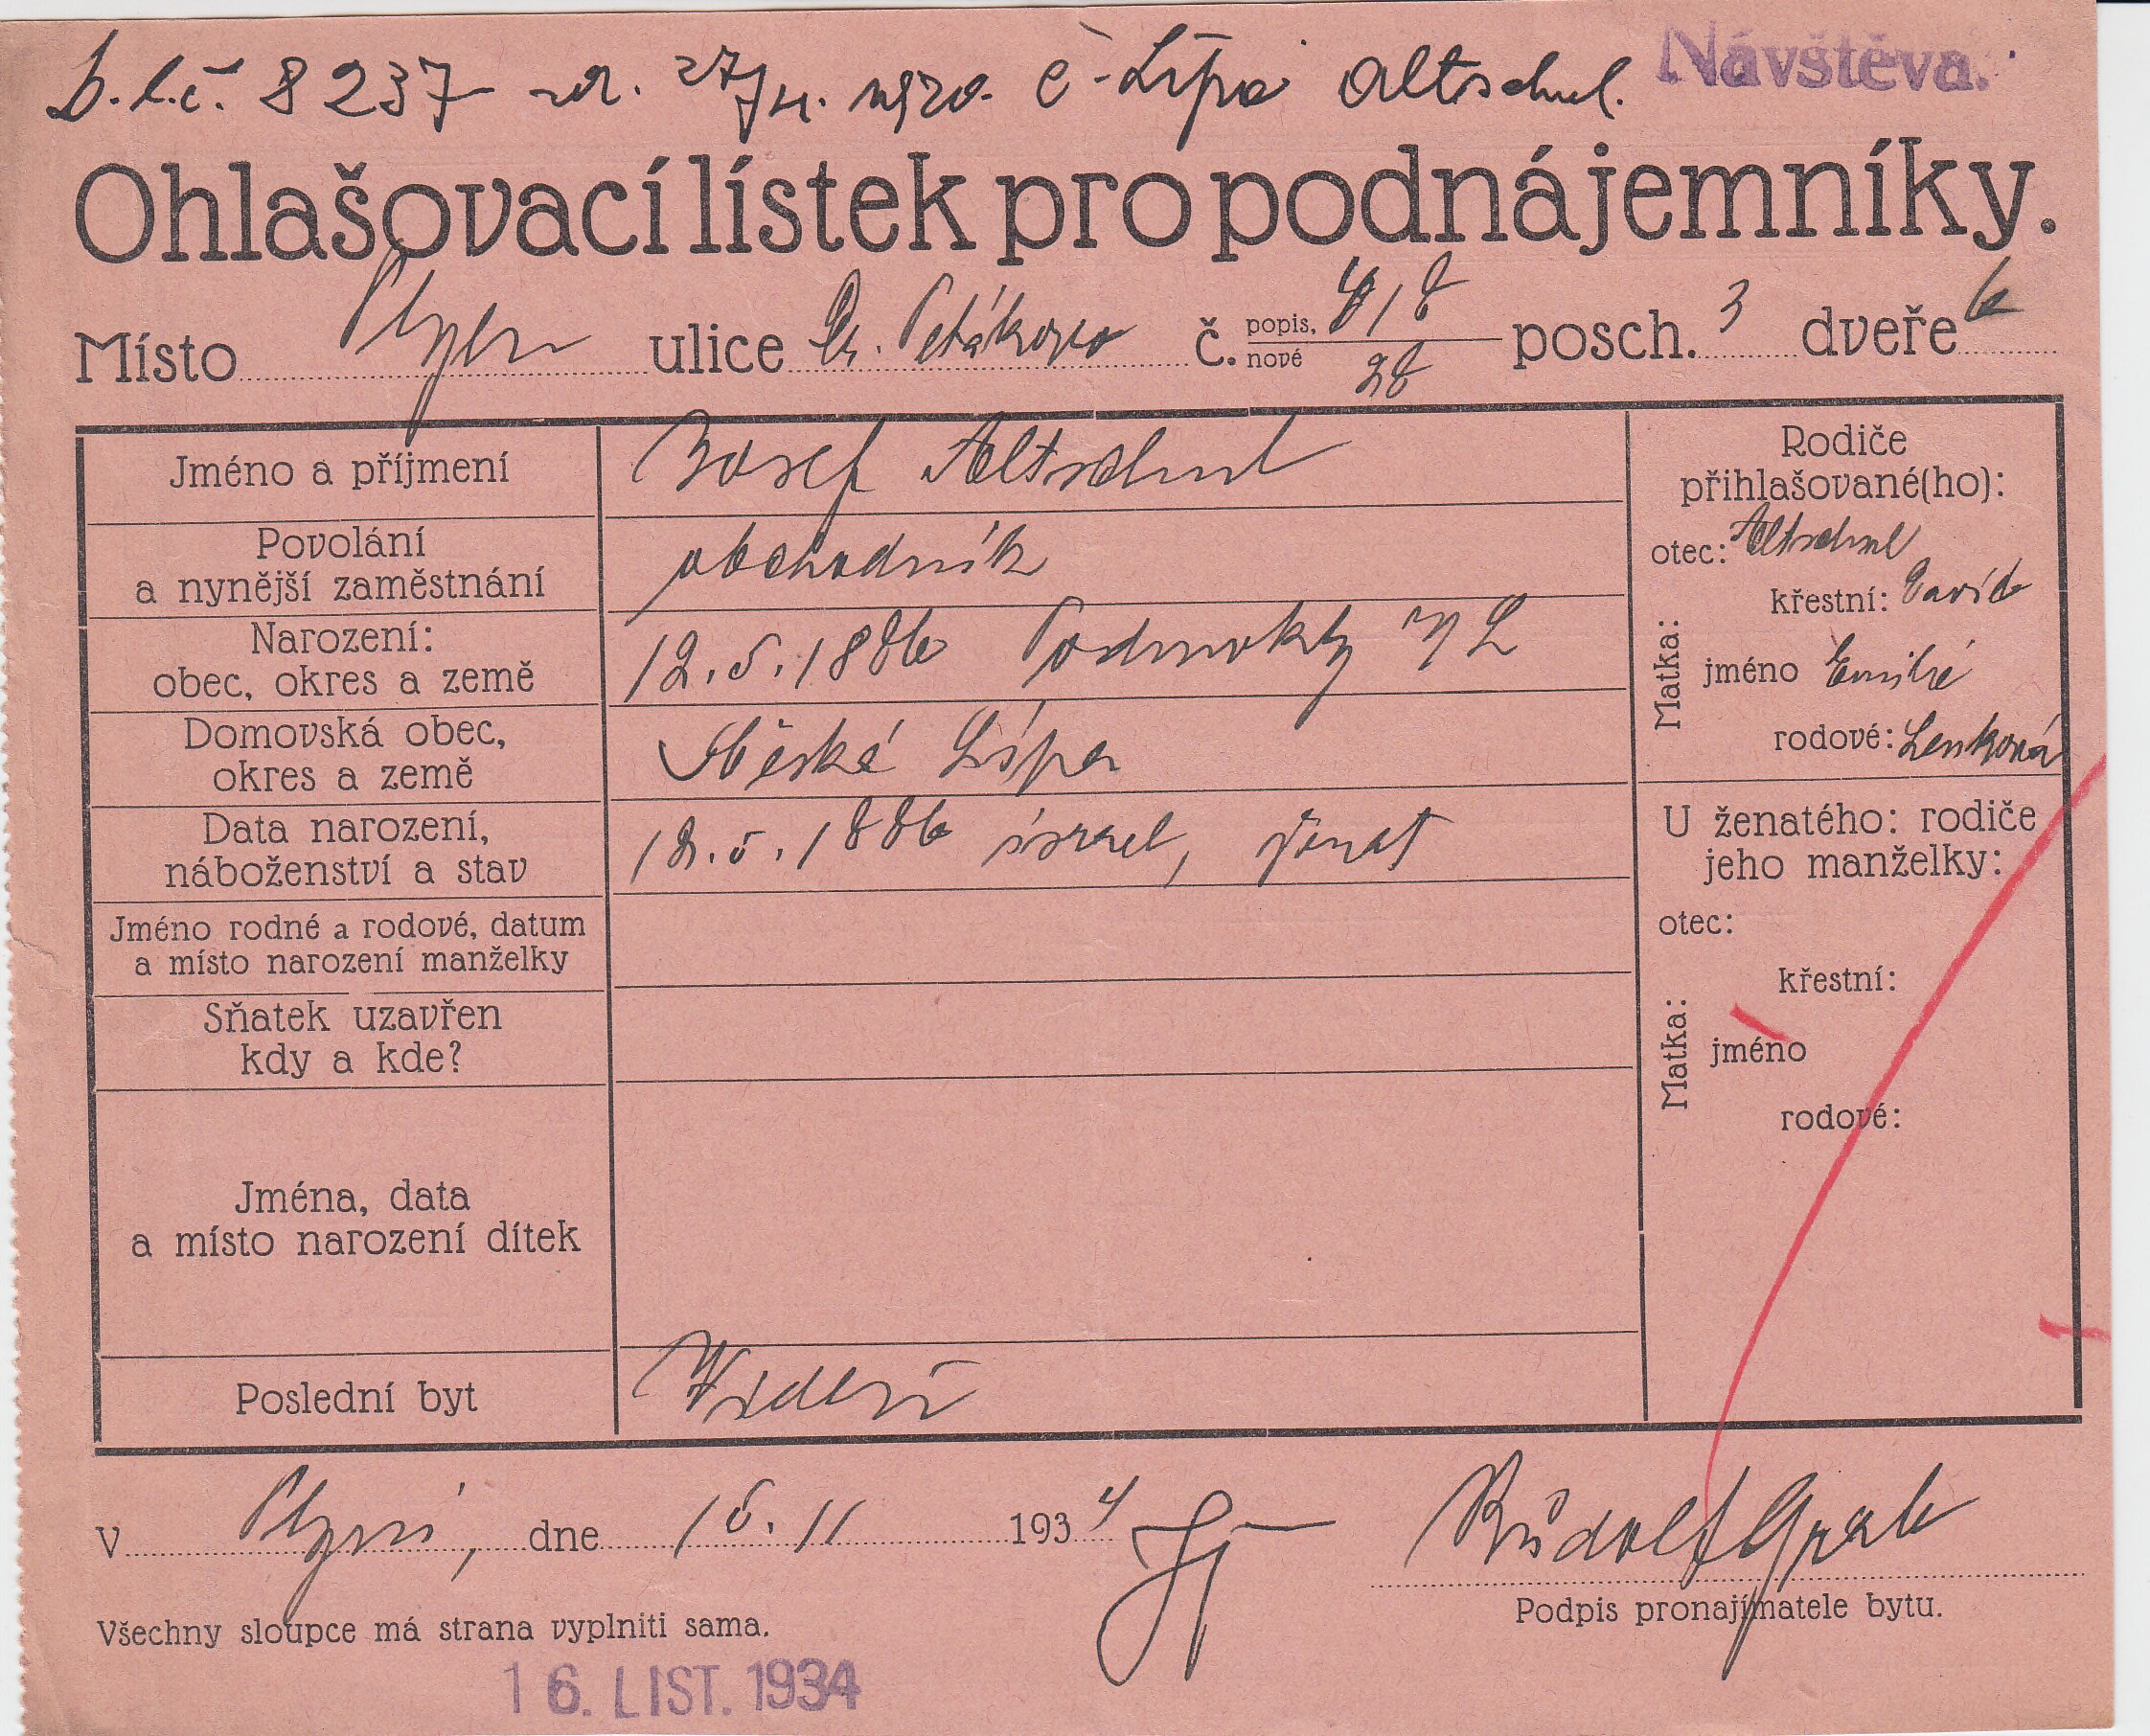 D. l. č. 8237 27/ 1920. Č. Lípa Altschul.
Návštěva.
Ohlašovací lístek pro podnájemníky.
Místo Plzen ulice Dr. Petákova č. popis. 818 nové 28 posch. 3 dveře 6
Jméno a příjmení Josef Altschul
Povolání
a nynější zaměstnání obchodník
Narození:
obec, okres a země 12. 5. 1886 Podmokly n/L
Domovská obec,
okres a země Česká Lípa
Data narození,
náboženství a stav 12. 5. 1886 israel, ženat
Jméno rodné a rodové, datum
a místo narození manželky
Sňatek uzavřen
kdy a kde?
Jména, data
a místo narození dítek
Poslední byt Videň
Rodiče
přihlašované(ho):
otec: Altschul
křestní: David
Matka:
jméno Emilie
rodové: Lenková
U ženatého: rodiče
jeho manželky:
otec:
křestní:
Matka:
jméno
rodové:
V Plzni, dne 15. 11 1934 Rudolf Grab
Podpis pronajímatele bytu.
Všechny sloupce má strana vyplniti sama.
16. LIST. 1934